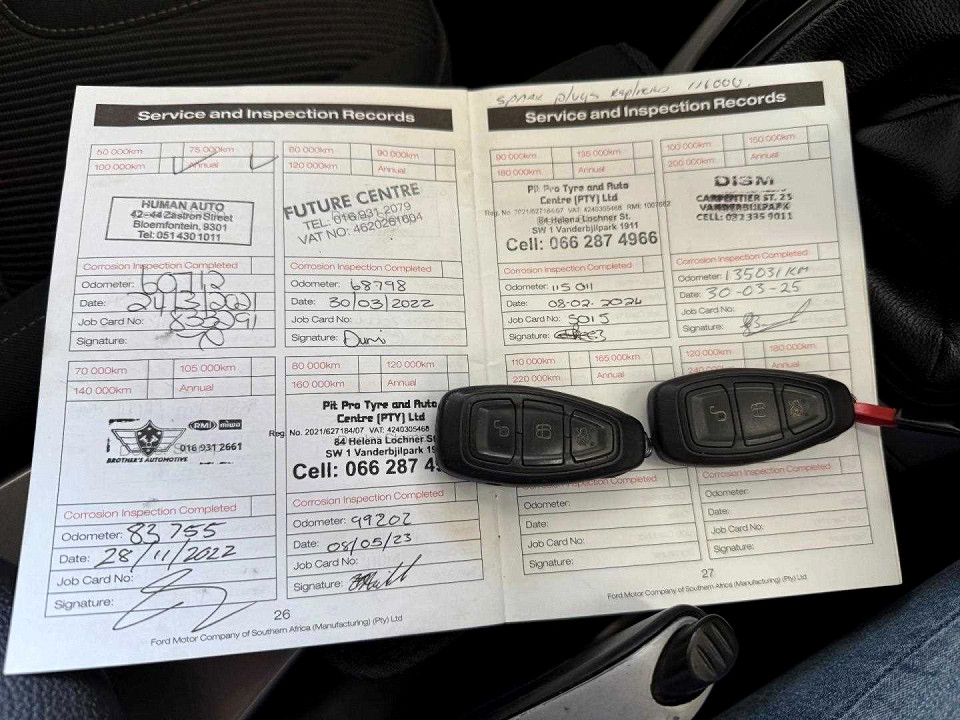 Service and Inspection Records
50 000km 75 000km
100 000km Annual
HUMAN AUTO
42-44 Zastron Street
Bloemfontein, 9301
Tel: 051 430 1011
Corrosion Inspection Completed
Odometer: 60712
Date: 24/3/2021
Job Card No:
Signature:
60 000km 90 000km
120 000km Annual
FUTURE CENTRE
TEL: 016 931-2079
VAT NO: 4620261604
Corrosion Inspection Completed
Odometer: 68798
Date: 30/03/2022
Job Card No:
Signature:
70 000km 105 000km
140 000km Annual
RMI miwa
016 931 2661
BROTHER'S AUTOMOTIVE
Corrosion Inspection Completed
Odometer: 83755
Date: 28/11/2022
Job Card No:
Signature:
80 000km 120 000km
160 000km Annual
Pit Pro Tyre and Auto
Centre (PTY) Ltd
Reg. No. 2021/627184/07 VAT: 4240305468
84 Helena Lochner St
SW 1 Vanderbjlpark 19
Cell: 066 287 4
Corrosion Inspection Completed
Odometer: 99202
Date: 08/05/23
Job Card No:
Signature:
26
Ford Motor Company of Southern Africa (Manufacturing) (Pty) Ltd
spark plugs replaced 116000.
Service and Inspection Records
90 000km 135 000km
180 000km Annual
Pit Pro Tyre and Auto
Centre (PTY) Ltd
Reg. No. 2021/627184/07 VAT: 4240305468 RMI: 1007662
84 Helena Lochner St.
SW 1 Vanderbjlpark 1911
Cell: 066 287 4966
Corrosion Inspection Completed
Odometer: 115011
Date: 08-02-2024
Job Card No: 5015
Signature:
100 000km 150 000km
200 000km Annual
DISM
CARPENTIER ST. 25
VANDERBIJLPARK
CELL: 082 335 9011
Corrosion Inspection Completed
Odometer: 135031KM
Date: 30-03-25
Job Card No:
Signature:
110 000km 165 000km
220 000km Annual
Corrosion Inspection Completed
Odometer:
Date:
Job Card No:
Signature:
120 000km 180 000km
Annual
Corrosion Inspection Completed
Odometer:
Date:
Job Card No:
Signature:
27
Ford Motor Company of Southern Africa (Manufacturing) (Pty) Ltd